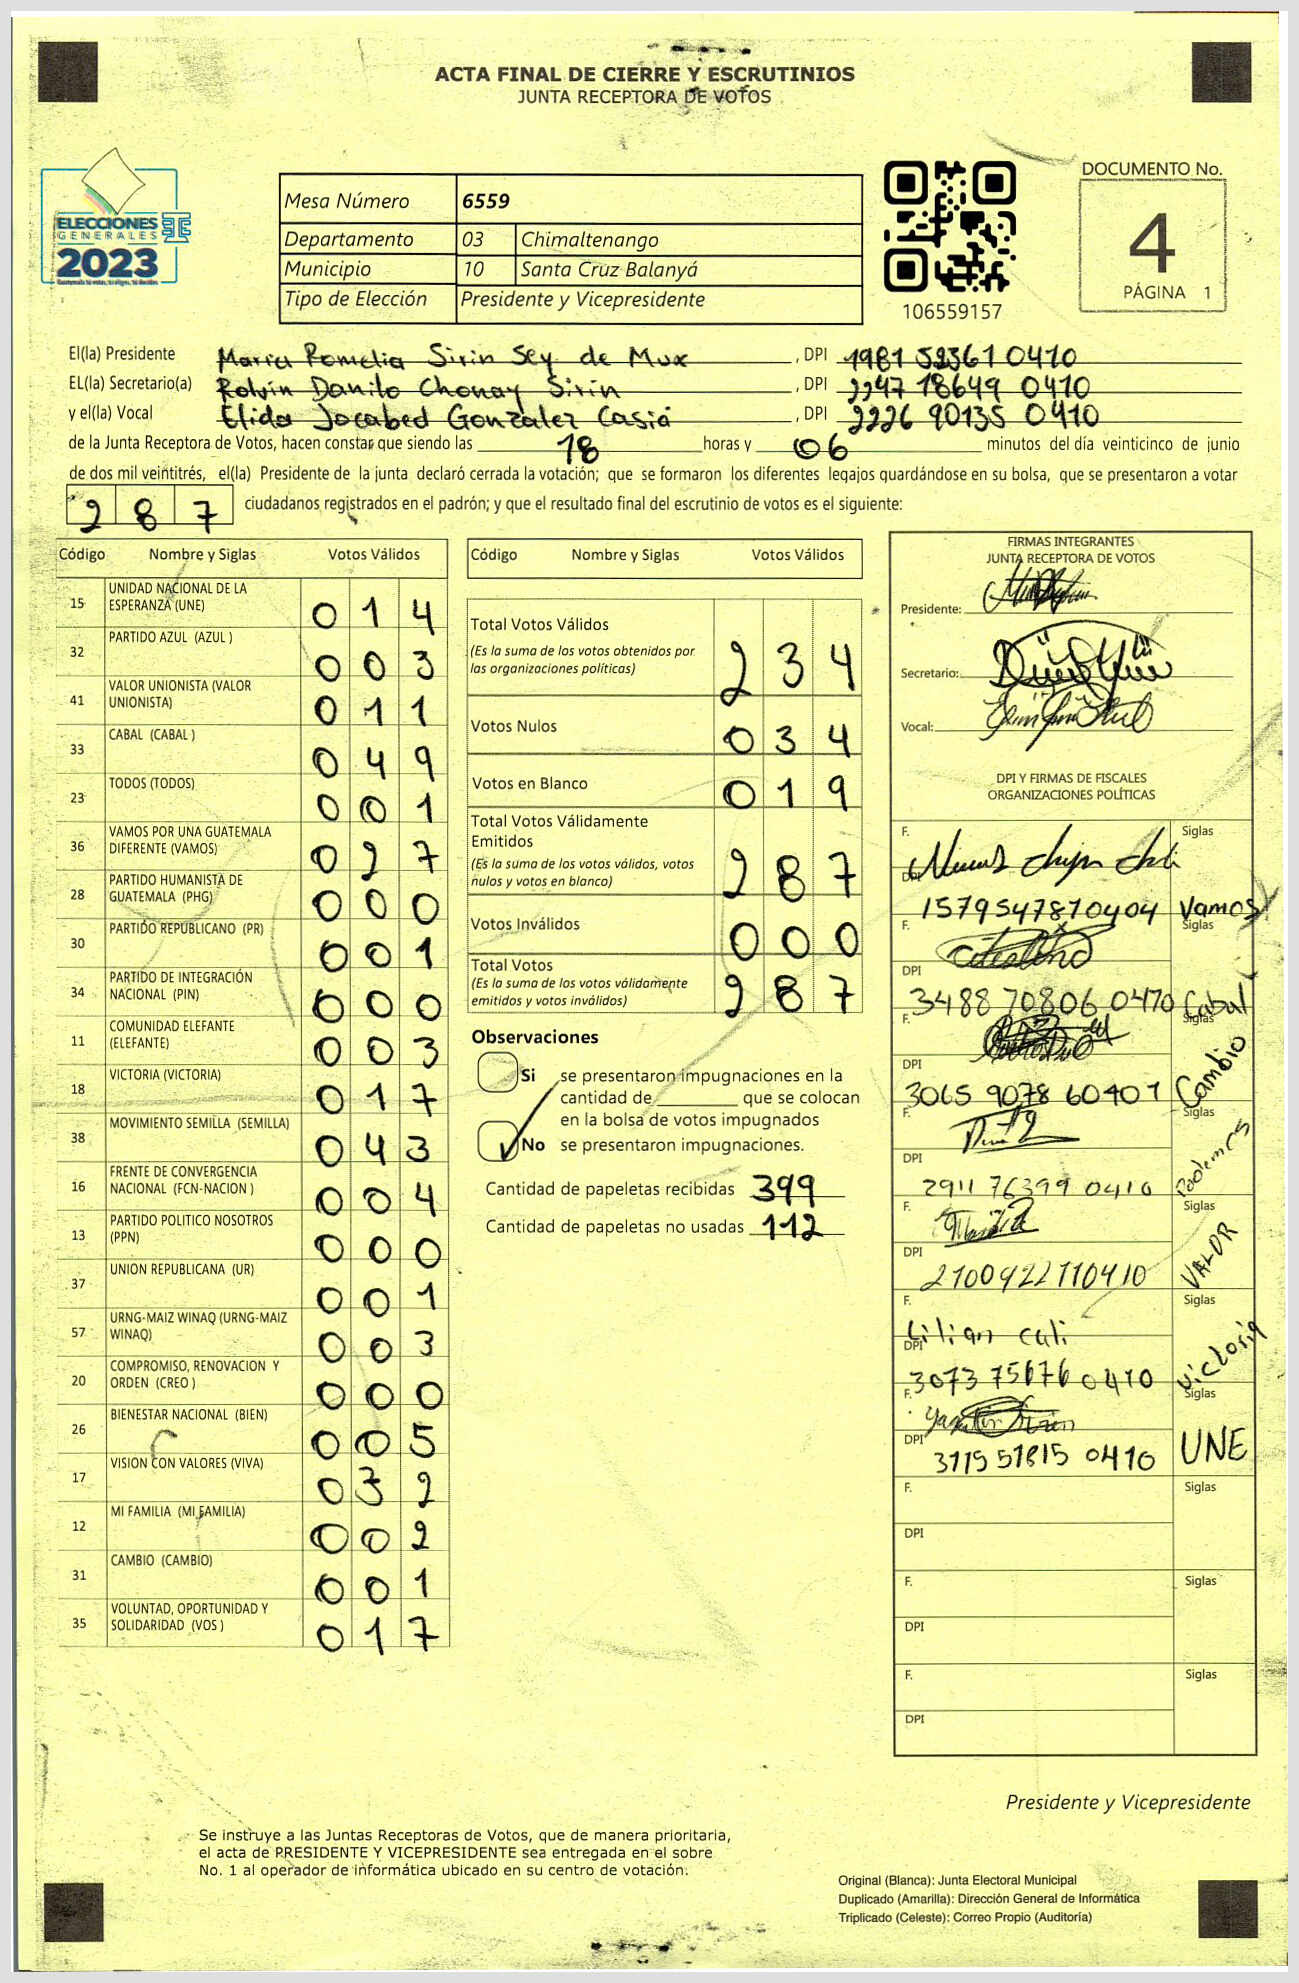 ACTA FINAL DE CIERRE Y ESCRUTINIOS
JUNTA RECEPTORA DE VOTOS
ELECCIONES
GENERALES
2023
Mesa Número 6559
Departamento 03 Chimaltenango
Municipio 10 Santa Cruz Balanyá
Tipo de Elección Presidente y Vicepresidente
106559157
DOCUMENTO No.
4
PÁGINA 1
El(la) Presidente Maria Romelia Sirin Sey de Mux , DPI 1981 52361 0410
EL(la) Secretario(a) Rolvin Danilo Chonay Sirin , DPI 2247 18649 0410
y el(la) Vocal Elida Jocabed Gonzalez Casiá , DPI 2226 90135 0410
de la Junta Receptora de Votos, hacen constar que siendo las 18 horas y 06 minutos del día veinticinco de junio
de dos mil veintitrés, el(la) Presidente de la junta declaró cerrada la votación; que se formaron los diferentes legajos quardándose en su bolsa, que se presentaron a votar
287 ciudadanos registrados en el padrón; y que el resultado final del escrutinio de votos es el siguiente:
Código Nombre y Siglas Votos Válidos
15 UNIDAD NACIONAL DE LA ESPERANZA (UNE) 014
32 PARTIDO AZUL (AZUL ) 003
41 VALOR UNIONISTA (VALOR UNIONISTA) 011
33 CABAL (CABAL ) 049
23 TODOS (TODOS) 001
36 VAMOS POR UNA GUATEMALA DIFERENTE (VAMOS) 027
28 PARTIDO HUMANISTA DE GUATEMALA (PHG) 000
30 PARTIDO REPUBLICANO (PR) 001
34 PARTIDO DE INTEGRACIÓN NACIONAL (PIN) 000
11 COMUNIDAD ELEFANTE (ELEFANTE) 003
18 VICTORIA (VICTORIA) 017
38 MOVIMIENTO SEMILLA (SEMILLA) 043
16 FRENTE DE CONVERGENCIA NACIONAL (FCN-NACION ) 004
13 PARTIDO POLITICO NOSOTROS (PPN) 000
37 UNION REPUBLICANA (UR) 001
57 URNG-MAIZ WINAQ (URNG-MAIZ WINAQ) 003
20 COMPROMISO, RENOVACION Y ORDEN (CREO ) 000
26 BIENESTAR NACIONAL (BIEN) 005
17 VISION CON VALORES (VIVA) 032
12 MI FAMILIA (MI FAMILIA) 002
31 CAMBIO (CAMBIO) 001
35 VOLUNTAD, OPORTUNIDAD Y SOLIDARIDAD (VOS ) 017
Código Nombre y Siglas Votos Válidos
Total Votos Válidos 234
(Es la suma de los votos obtenidos por
las organizaciones políticas)
Votos Nulos 034
Votos en Blanco 019
Total Votos Válidamente
Emitidos 287
(Es la suma de los votos válidos, votos
nulos y votos en blanco)
Votos Inválidos 000
Total Votos 287
(Es la suma de los votos válidamente
emitidos y votos inválidos)
Observaciones
Si se presentaron impugnaciones en la
cantidad de que se colocan
en la bolsa de votos impugnados
No se presentaron impugnaciones.
Cantidad de papeletas recibidas 399
Cantidad de papeletas no usadas 112
FIRMAS INTEGRANTES
JUNTA RECEPTORA DE VOTOS
Presidente:
Secretario:
Vocal:
DPI Y FIRMAS DE FISCALES
ORGANIZACIONES POLÍTICAS
F. Siglas
DPI 1579547870404 Vamos
F. Siglas
DPI 3488 70806 0470 Cabal
F. Siglas
DPI 3065 9078 60407 Cambio
F. Siglas
DPI 2911 76399 0410 Podemos
F. Siglas
DPI 2100922110410 VALOR
F. Lilian Cali Siglas
DPI 3073 75676 0410 Victoria
F. Siglas
DPI 3115 51815 0410 UNE
F. Siglas
DPI
F. Siglas
DPI
F. Siglas
DPI
Presidente y Vicepresidente
Se instruye a las Juntas Receptoras de Votos, que de manera prioritaria,
el acta de PRESIDENTE Y VICEPRESIDENTE sea entregada en el sobre
No. 1 al operador de informática ubicado en su centro de votación.
Original (Blanca): Junta Electoral Municipal
Duplicado (Amarilla): Dirección General de Informática
Triplicado (Celeste): Correo Propio (Auditoría)